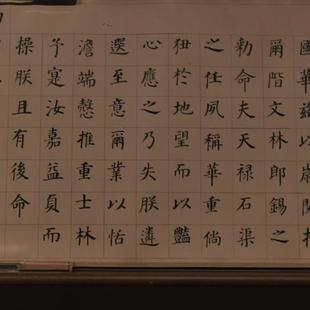 國華茲歲
爾階文林郎錫之
勑命夫天禄石渠
之任夙稱華重倘
狃於地望而以豔
心應之乃失朕遴
選至意爾業以恬
澹端慤推重士林
予寔汝嘉益貞而
操朕且有後命